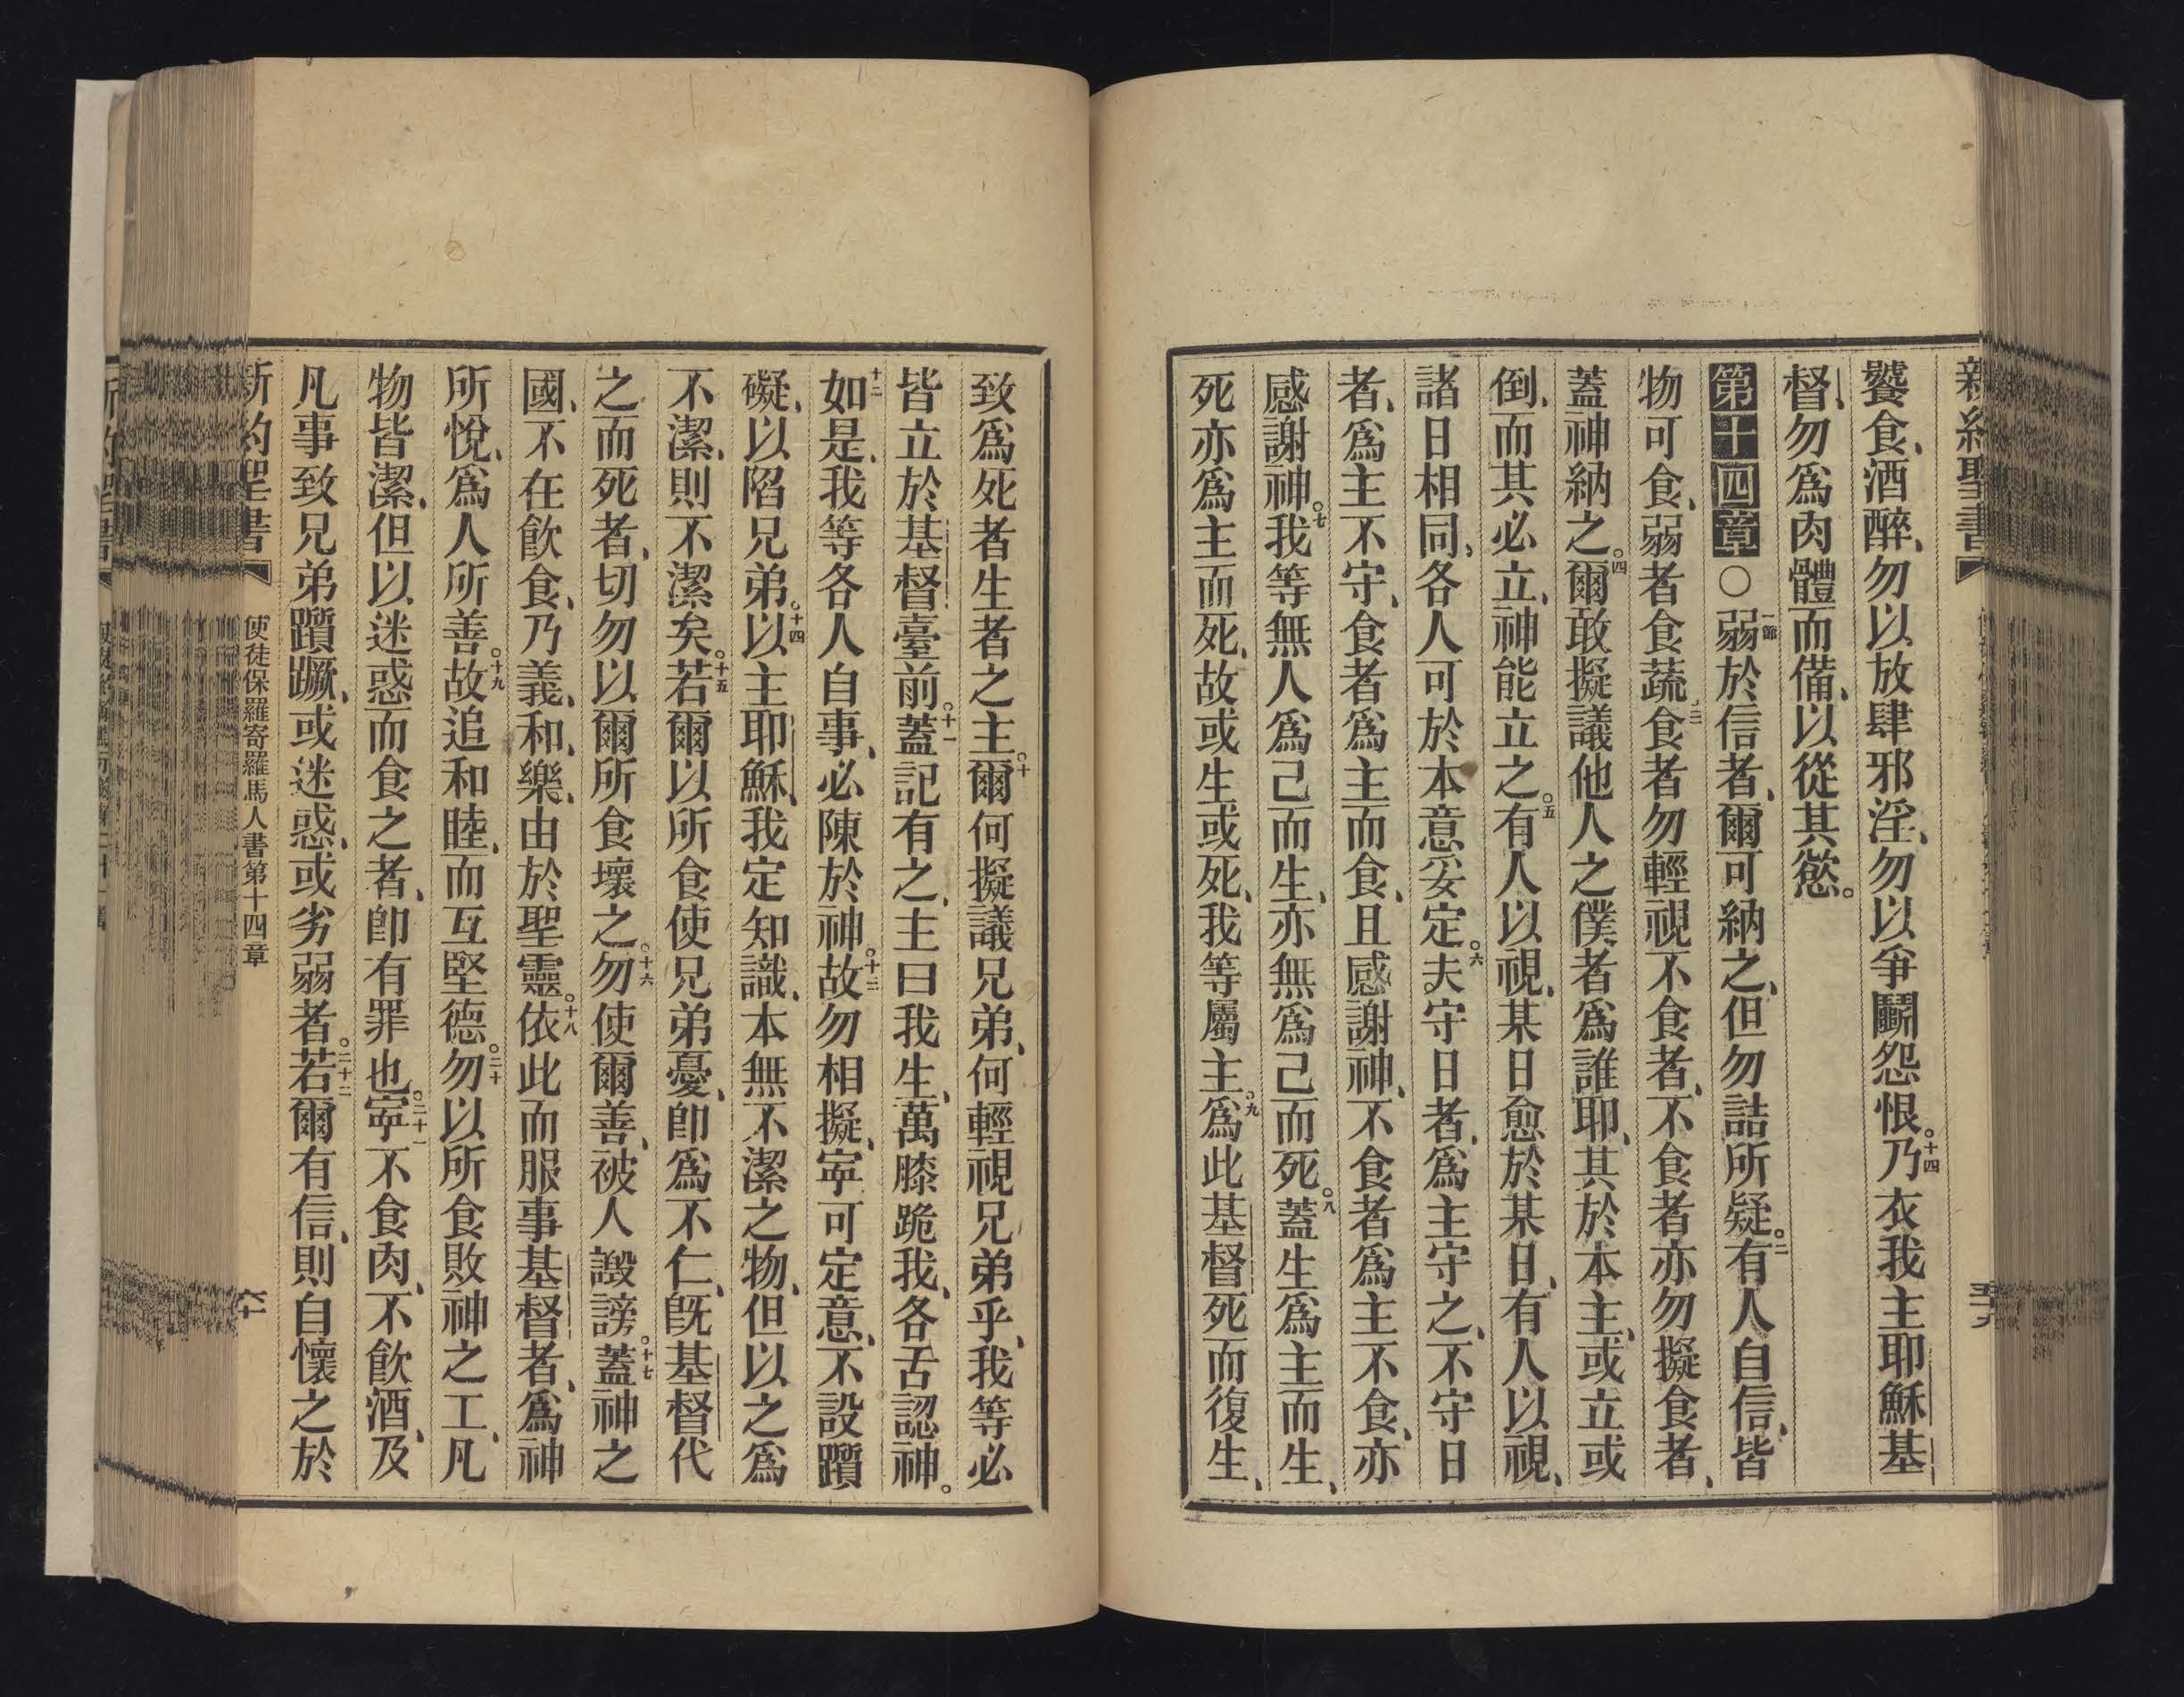 新約聖書
饕食、酒醉、勿以放肆邪淫、勿以爭鬭怨恨。十四乃衣我主耶穌基
督、勿爲肉體而備、以從其慾。
第十四章〇一節弱於信者、爾可納之、但勿詰所疑。二有人自信、皆
物可食、弱者食蔬、三食者勿輕視不食者、不食者亦勿擬食者、
蓋神納之。四爾敢擬議他人之僕者爲誰耶、其於本主、或立或
倒、而其必立、神能立之。五有人以視、某日愈於某日、有人以視、
諸日相同、各人可於本意妥定。六夫守日者、爲主守之、不守日
者、爲主不守、食者爲主而食、且感謝神、不食者爲主不食、亦
感謝神。七我等無人爲己而生、亦無爲己而死。八蓋生爲主而生、
死亦爲主而死、故或生或死、我等屬主。九爲此基督死而復生、
五十九
致爲死者生者之主。十爾何擬議兄弟、何輕視兄弟乎、我等必
皆立於基督臺前。十一蓋記有之、主曰我生、萬膝跪我、各舌認神。
十二如是、我等各人自事、必陳於神。十三故勿相擬、寕可定意、不設躓
礙、以陷兄弟。十四以主耶穌、我定知識、本無不潔之物、但以之爲
不潔、則不潔矣。十五若爾以所食使兄弟憂、卽爲不仁、旣基督代
之而死者、切勿以爾所食壞之。十六勿使爾善、被人譭謗。十七蓋神之
國、不在飲食、乃義、和、樂、由於聖靈。十八依此而服事基督者、爲神
所悅、爲人所善。十九故追和睦、而互堅德。二十勿以所食敗神之工、凡
物皆潔、但以迷惑而食之者、卽有罪也。二十一寕不食肉、不飲酒、及
凡事致兄弟躓蹶、或迷惑、或劣弱者。二十二若爾有信、則自懷之於
新約聖書 使徒保羅寄羅馬人書第十四章 六十